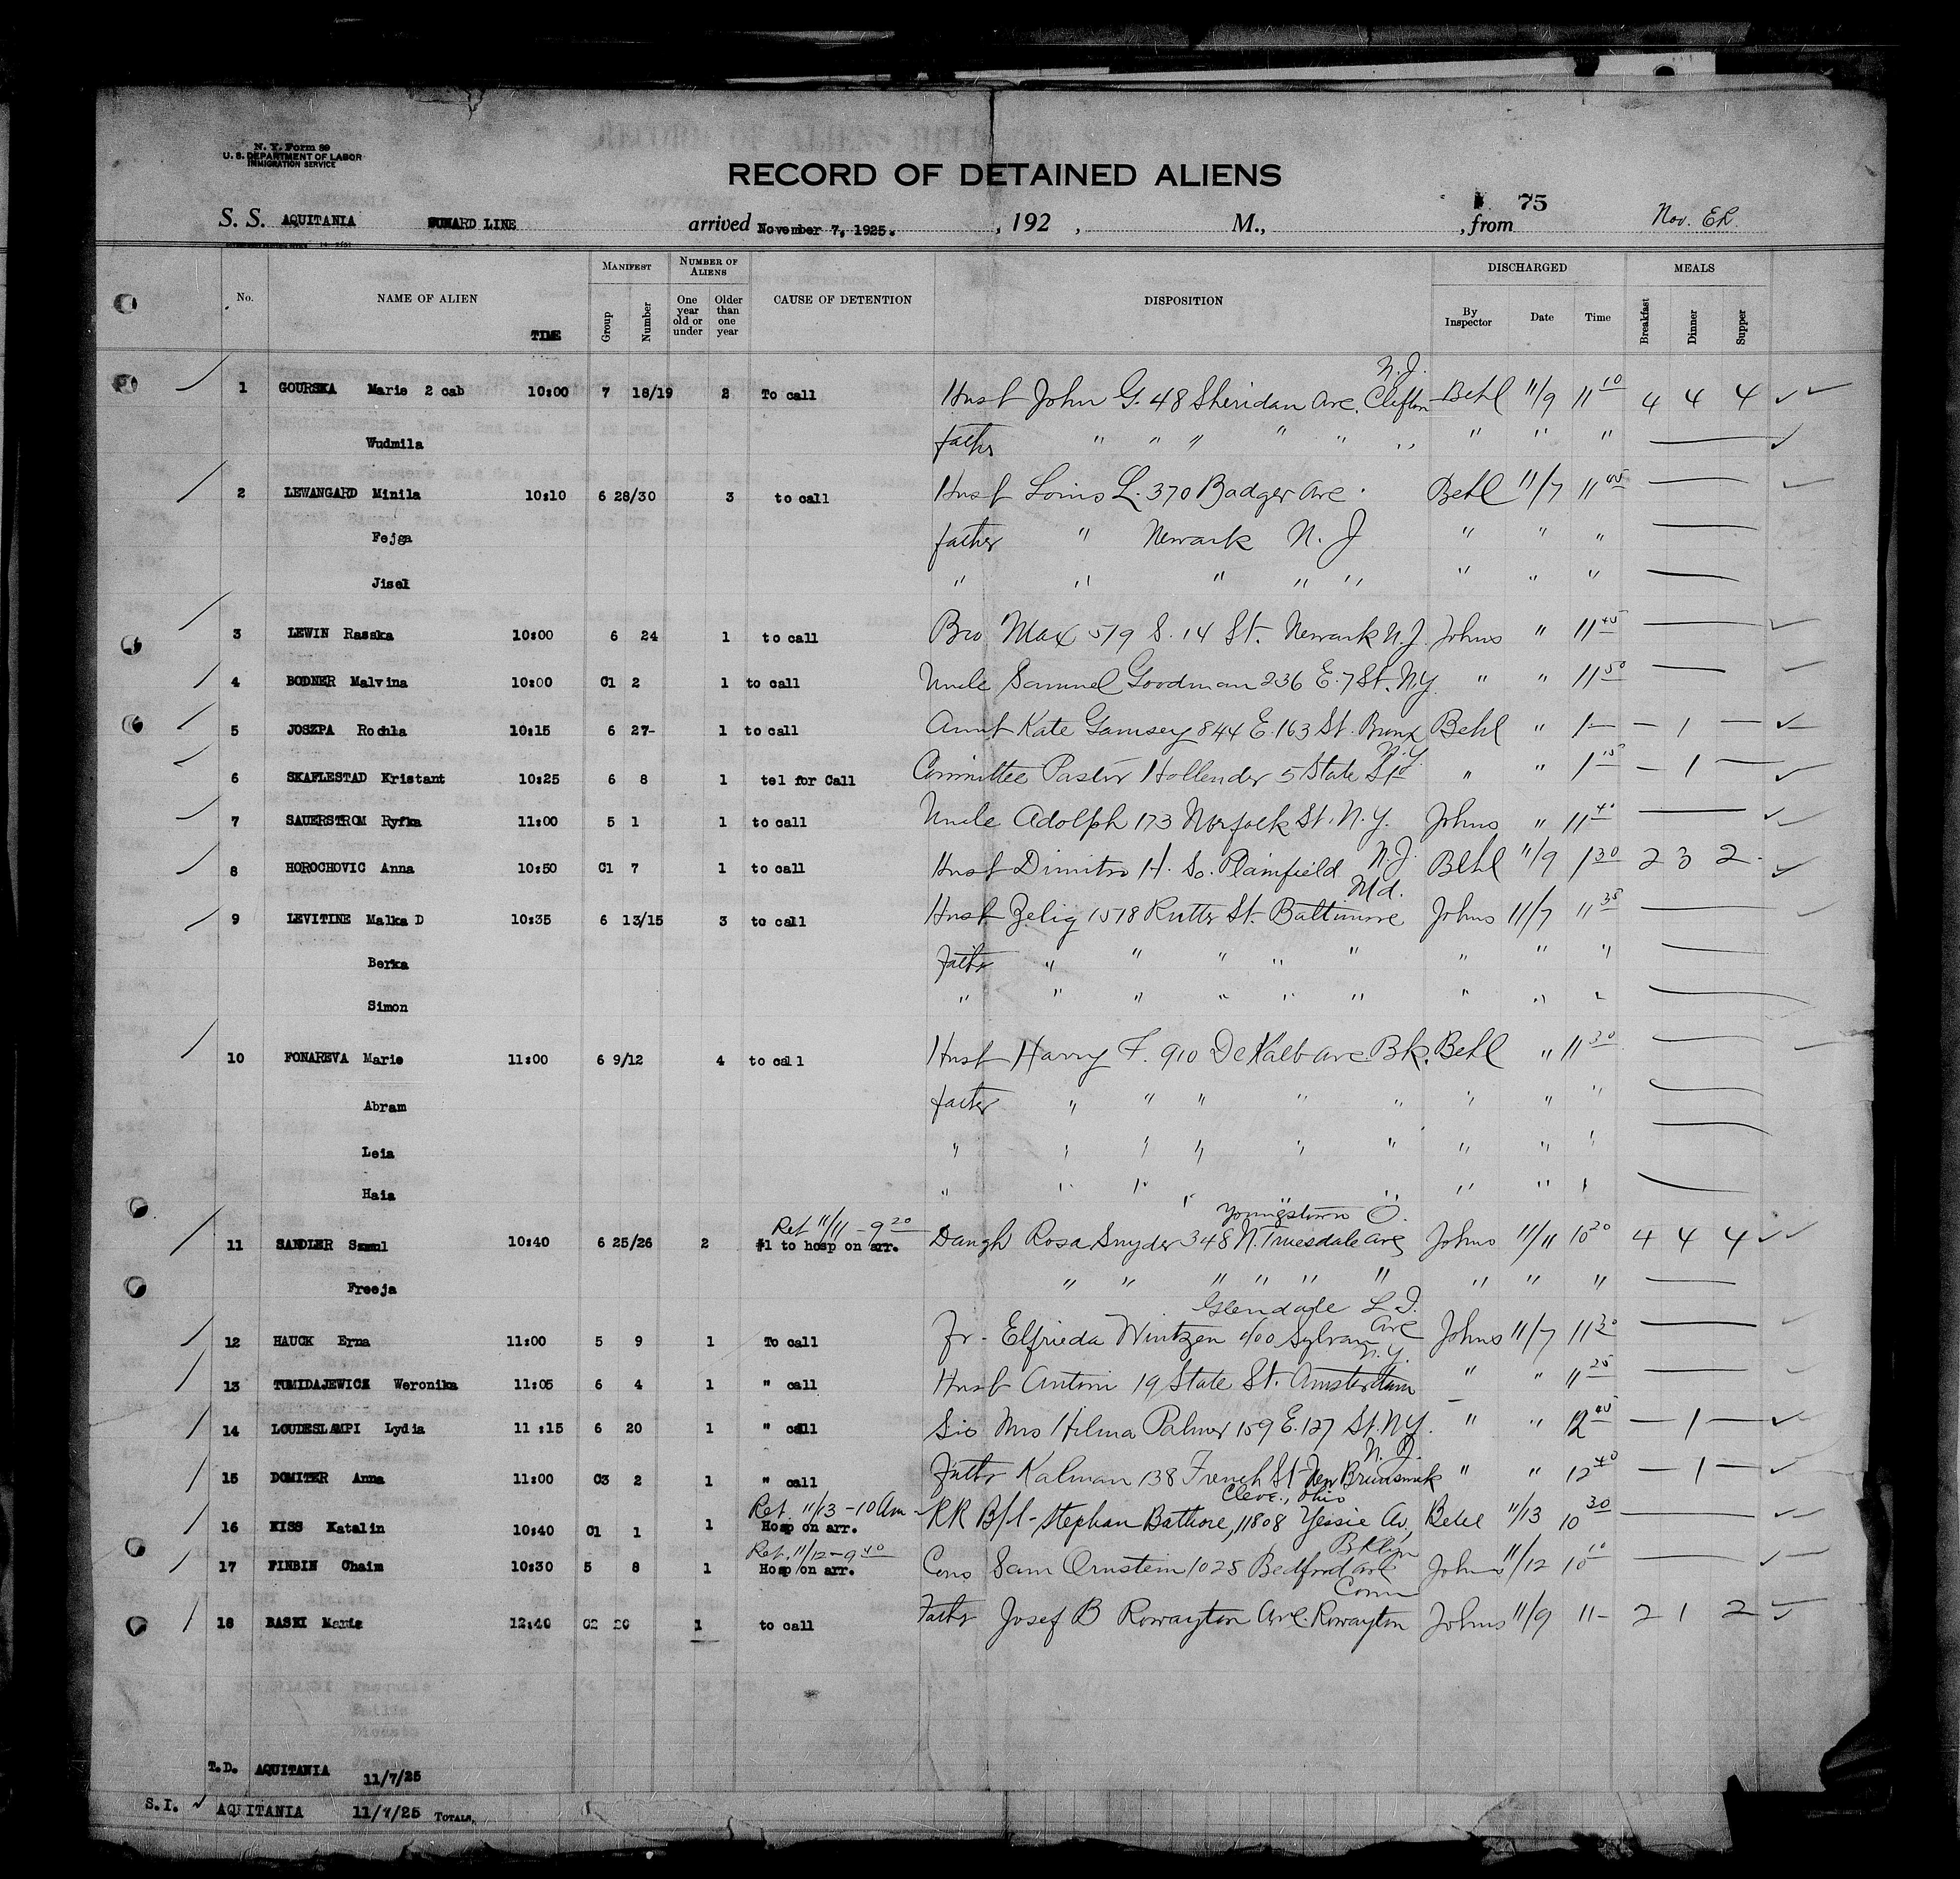 N. Y. Form 89
U. S. DEPARTMENT OF LABOR
IMMIGRATION SERVICE
RECORD OF DETAINED ALIENS
75
S. S. AQUITANIA CUNARD LINE arrived November 7, 1925. , 192 , M., , from Nov. ER.
No. NAME OF ALIEN TIME MANIFEST Group Number NUMBER OF ALIENS One year old or under Older than one year CAUSE OF DETENTION DISPOSITION DISCHARGED By Inspector Date Time MEALS Breakfast Dinner Supper
N.J.
1 GOURSKA Marie 2 cab 10:00 7 18/19 2 To call Husb John G. 48 Sheridan Ave. Clifton Behl 11/9 11 10 4 4 4
Wudmila father " " " " " " " " "
2 LEWANGARD Minila 10:10 6 28/30 3 to call Husb Louis L. 370 Badger Ave. Behl 11/7 11 45
Fejga father " Newark N. J " " "
Jisel " " " " " " " "
3 LEWIN Rasska 10:00 6 24 1 to call Bro Max 519 S. 14 St. Newark N.J. Johns " 11 45
4 BODNER Malvina 10:00 C1 2 1 to call Uncle Samuel Goodman 236 E. 7 St. N.Y " " 11 50
5 JOSZPA Rochla 10:15 6 27- 1 to call Aunt Kate Gamsey 844 E. 163 St. Bronx Behl " 1— — 1 —
N.Y.
6 SKAFLESTAD Kristant 10:25 6 8 1 tel for Call Committee Pastor Hollender 5 State St " " 1 15 — 1 —
7 SAUERSTROM Ryfka 11:00 5 1 1 to call Uncle Adolph 173 Norfolk St. N.Y. Johns " 11 40
8 HOROCHOVIC Anna 10:50 C1 7 1 to call Husb Dimitro H. So. Plainfield N.J. Behl 11/9 1 30 2 3 2
Md.
9 LEVITINE Malka D 10:35 6 13/15 3 to call Husb Zelig 1518 Rutter St. Baltimore Johns 11/7 11 35
Berka Father " " " " " " " "
Simon " " " " " " " " "
10 FONAREVA Marie 11:00 6 9/12 4 to call Husb Harry F. 910 DeKalb Ave. Bk. Behl " 11 30
Abram father " " " " " " " "
Leia " " " " " " " " "
Haia " " " " " " " "
Ret 11/11 - 9 20 Youngstown O.
11 SANDLER Szmul 10:40 6 25/26 2 #1 to hosp on arr. Daugh Rosa Snyder 348 N. Truesdale Ave Johns 11/11 10 20 4 4 4
Freeja " " " " " " " " "
Glendale L I.
12 HAUCK Erna 11:00 5 9 1 To call Fr. Elfrieda Wintzen Sylvan Ave Johns 11/7 11 30
N.Y.
13 TUMIDAJEWICZ Weronika 11:05 6 4 1 " call Husb Antoni 19 State St. Amsterdam " " 11 25
14 LOUDESLAMPI Lydia 11 :15 6 20 1 " call Sis Mrs Hilma Palmer 159 E. 127 St. N.Y. " " 12 40 — 1 —
N. J.
15 DOMITER Anna 11:00 C3 2 1 " call Father Kalman 138 French St. New Brunswick " " 12 40 — 1 —
Ret. 11/13 - 10 Am Cleve., Ohio
16 KISS Katalin 10:40 C1 1 1 Hosp on arr. RR B/l - Stephan Bathore, 11808 Av, Behl 11/13 10 30
Ret. 11/12 - 9 40 Bklyn
17 FINBIN Chaim 10:30 5 8 1 Hosp on arr. Cous Sam Ornstein 1025 Bedford Ave Johns 11/12 10 10
Conn
18 BASKI Maria 12:40 C2 20 1 to call Father Josef B Rowayton Ave. Rowayton Johns 11/9 11- 2 1 2
T.D. AQUITANIA 11/7/25
S.I. AQUITANIA 11/7/25 TOTALS,